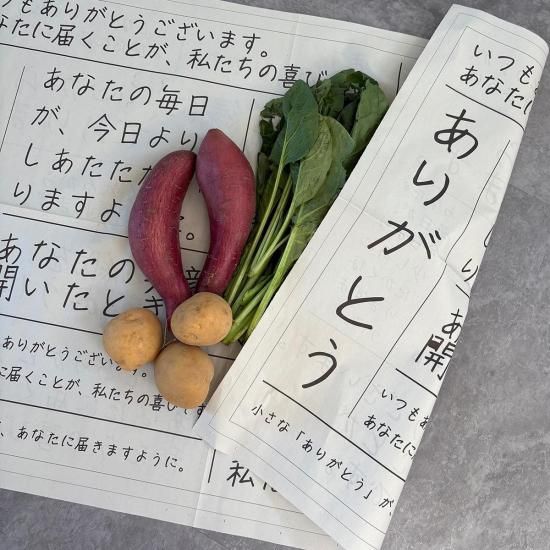 もありがとうございます。
なたに届くことが、私たちの喜び
あなたの毎日
が、今日より
しあたたか
りますよ
。
あなたの
開いたとき
ありがとうございます。
に届くことが、私たちの喜びです
、あなたに届きますように。
いつも
あなたに
ありがとう
あ
開
いつもあ
あなたに
小さな「ありがとう」が、
私た